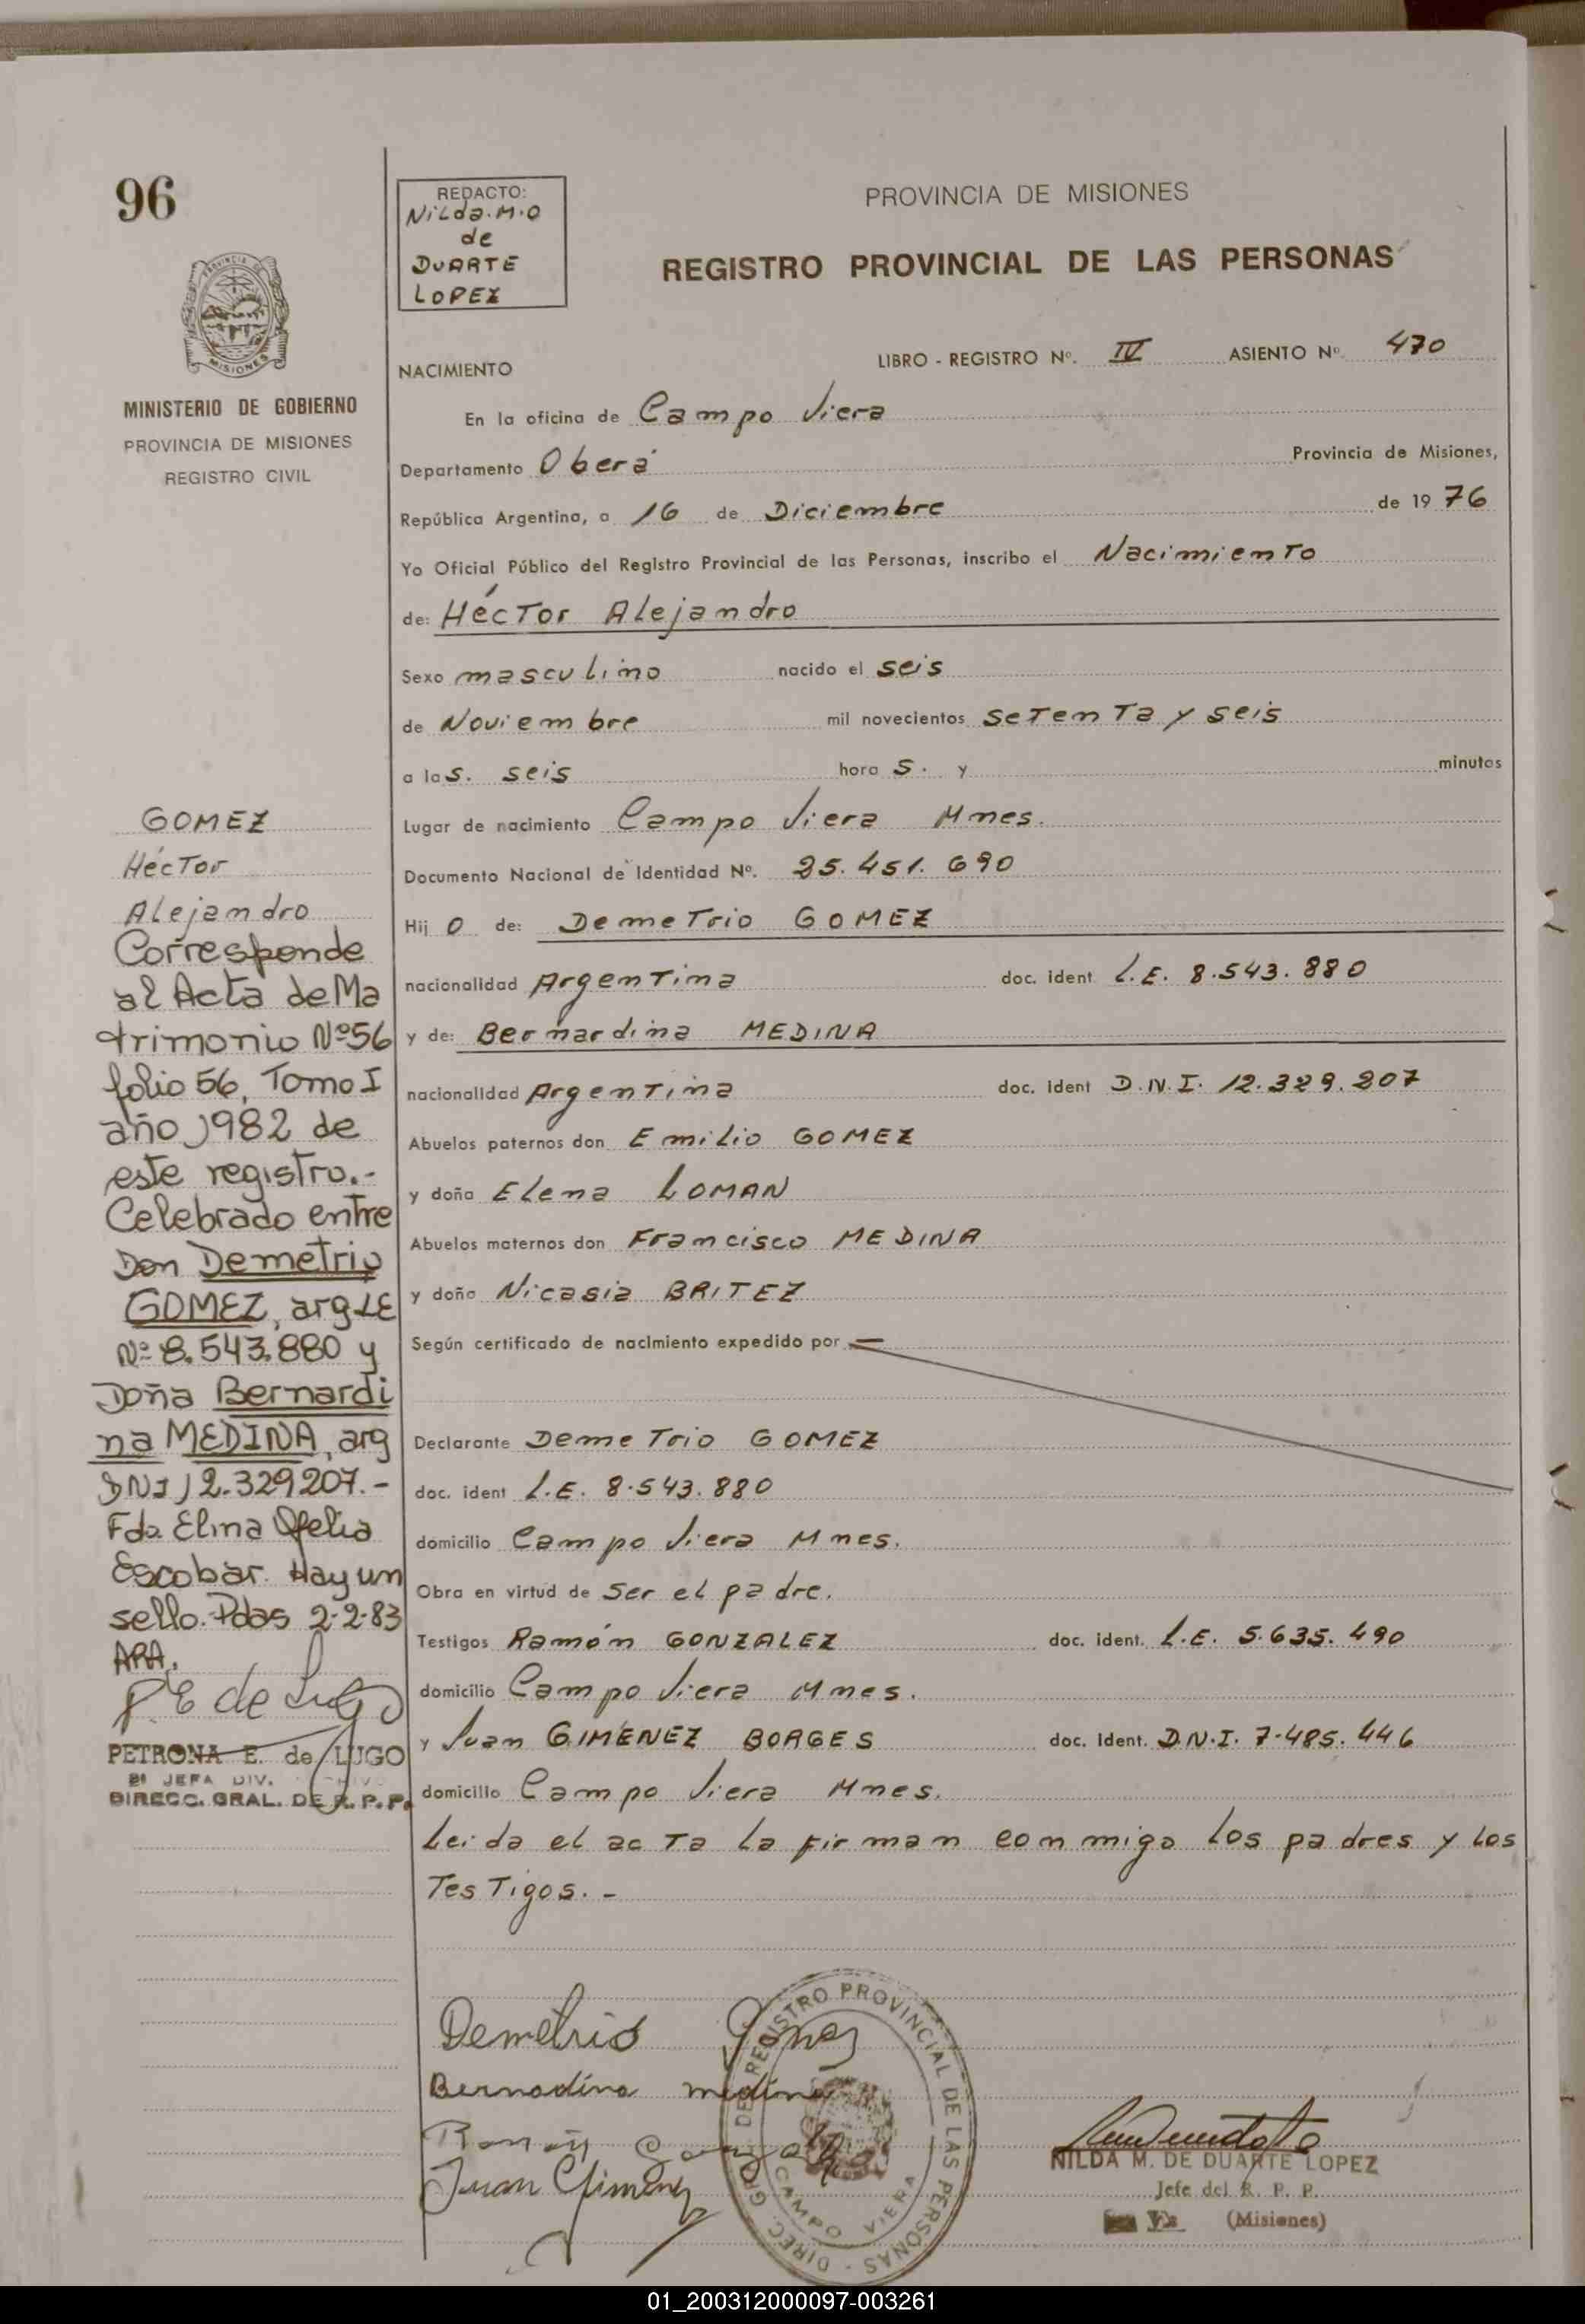 96
REDACTO:
Nilda.M.O
de
DUARTE
LOPEZ
PROVINCIA DE MISIONES
REGISTRO PROVINCIAL DE LAS PERSONAS
PROVINCIA DE
MISIONES
MINISTERIO DE GOBIERNO
PROVINCIA DE MISIONES
REGISTRO CIVIL
NACIMIENTO
LIBRO - REGISTRO Nº. IV ASIENTO Nº 470
En la oficina de Campo Viera
Departamento Oberá Provincia de Misiones,
República Argentina, a 16 de Diciembre de 19 76
Yo Oficial Público del Registro Provincial de las Personas, inscribo el Nacimiento
de: Héctor Alejandro
Sexo masculino nacido el seis
de Noviembre mil novecientos setenta y seis
a las. seis hora s. y minutos
Lugar de nacimiento Campo Viera Mnes.
Documento Nacional de Identidad Nº. 25.451.690
Hij o de: Demetrio GOMEZ
nacionalidad Argentina doc. ident. L.E. 8.543.880
y de: Bernardina MEDINA
nacionalidad Argentina doc. ident D.N.I. 12.329.207
Abuelos paternos don Emilio GOMEZ
y doña Elena LOMAN
Abuelos maternos don Francisco MEDINA
y doña Nicasia BRITEZ
Según certificado de nacimiento expedido por
Declarante Demetrio GOMEZ
doc. ident L.E. 8.543.880
domicilio Campo Viera Mnes.
Obra en virtud de ser el padre.
Testigos Ramón GONZALEZ doc. ident. L.E. 5.635.490
domicilio Campo Viera Mnes.
y Juan GIMENEZ BORGES doc. ident. D.N.I. 7.485.446
domicilio Campo Viera Mnes.
Leida el acta la firman conmigo los padres y los
Testigos.-
GOMEZ
Héctor
Alejandro
Corresponde
al Acta de Ma
trimonio Nº56
folio 56, Tomo I
año 1982 de
este registro.-
Celebrado entre
Don Demetrio
GOMEZ, arg LE
Nº 8.543.880 y
Doña Bernardi
na MEDINA, arg
DNI 12.329207.-
Fdo. Elina Ofelia
Escobar. Hay un
sello. Pdas 2-2-83
ARA.
P. E de Lugo
PETRONA E. de LUGO
JEFA DIV.
DIRECC. GRAL. DE R. P. P.
Demetrio Gomez
Bernadina medina
Ramón Gonzalez
Juan Gimenez
DIREC. GRAL. DEL REGISTRO PROVINCIAL DE LAS PERSONAS
CAMPO VIERA
NILDA M. DE DUARTE LOPEZ
Jefe del R. P. P.
(Misiones)
01_200312000097-003261